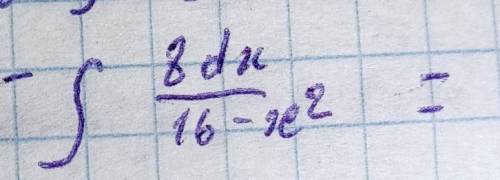 - ∫ 8dx / 16 - x² =